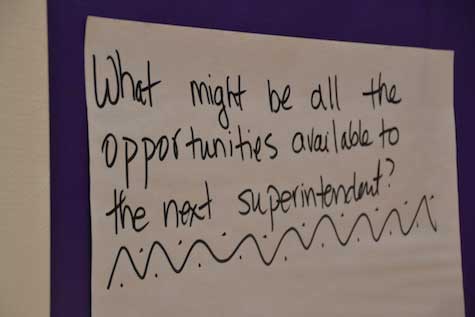 What might be all the
opportunities available to
the next superintendent?